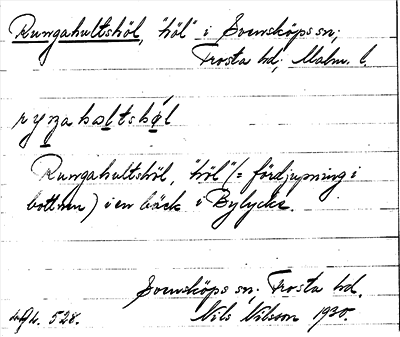 Rungahultshöl, "höl" i Svensköps sn;
Frosta hd; Malm. l.
ryṇahọltshǿ̣l
Rungahultshöl, "höl" (= fördjupning i
bottnen) i en bäck i Bylycke.
Svensköps sn. Frosta hd.
528. Nils Nilsson 1930.